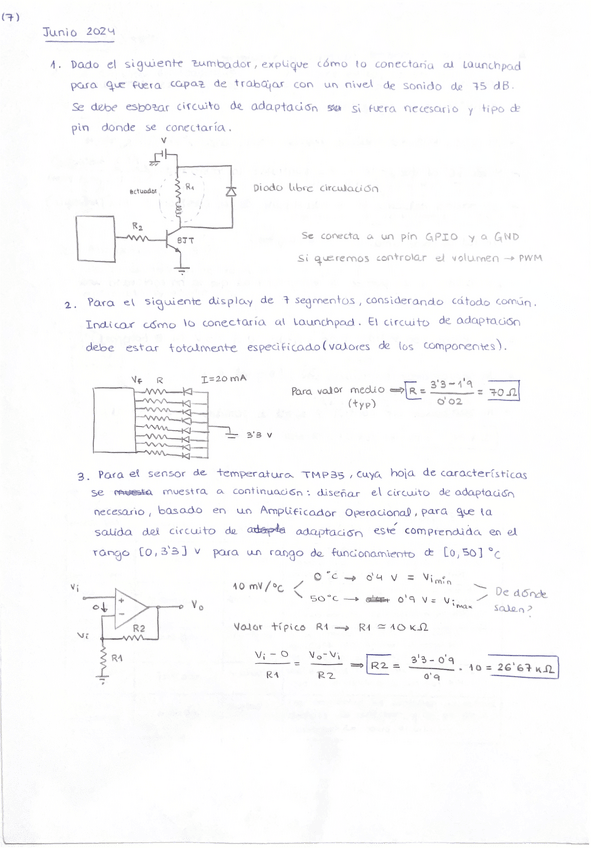 (7)
Junio 2024
1. Dado el siguiente zumbador, explique cómo lo conectaría al Launchpad
para que fuera capaz de trabajar con un nivel de sonido de 75 dB.
Se debe esbozar circuito de adaptación si fuera necesario y tipo de
pin donde se conectaría.
V
actuador
R1
Diodo libre circulación
R2
BJT
Se conecta a un pin GPIO y a GND
Si queremos controlar el volumen → PWM
2. Para el siguiente display de 7 segmentos, considerando cátodo común.
Indicar cómo lo conectaría al Launchpad. El circuito de adaptación
debe estar totalmente especificado (valores de los componentes).
VF R I=20 mA
3'3 V
Para valor medio ⟹ R = (3'3 - 1'9) / 0'02 = 70 Ω
(typ)
3. Para el sensor de temperatura TMP35, cuya hoja de características
se muestra a continuación: diseñar el circuito de adaptación
necesario, basado en un Amplificador Operacional, para que la
salida del circuito de adaptación esté comprendida en el
rango [0,3'3] V para un rango de funcionamiento de [0,50] °C
Vi
0
+
-
Vo
Vi
R2
R1
10 mV/°C
0 °C → 0'4 V = Vimín
50°C → 0'9 V = Vimax
De dónde
salen?
Valor típico R1 → R1 ≃ 10 kΩ
(Vi - 0) / R1 = (Vo - Vi) / R2 ⟹ R2 = (3'3 - 0'9) / 0'9 · 10 = 26'67 kΩ